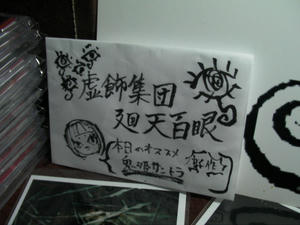 虚飾集団
廻天百眼
本日のオススメ
鬼姫サントラ
新作!